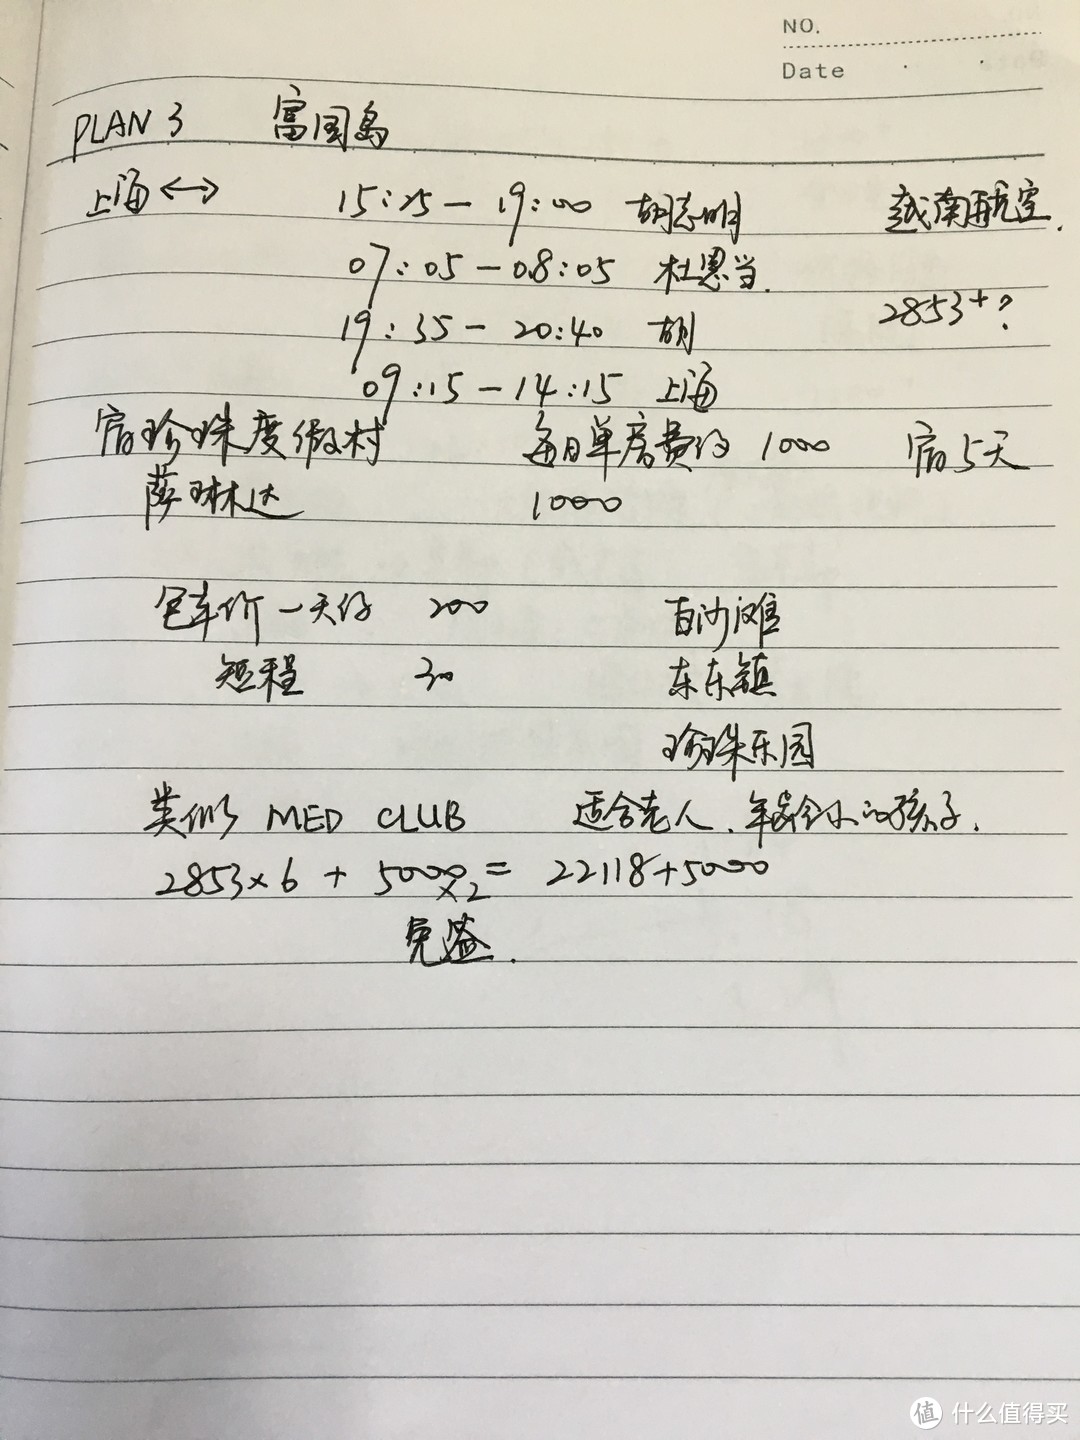 NO.
Date
PLAN 3 富国岛
上海 ↔ 15:25 — 19:00 胡志明 越南航空.
07:05 — 08:05 杜恩当.
2853+?
19:35 — 20:40 胡
09:15 — 14:15 上海
宿珍珠度假村 每日单房费约 1000 宿5天
萨琳达 1000
包车价 一天约 200 白沙滩
短程 30 东东镇
珍珠乐园
类似 MED CLUB 适合老人、年龄小的孩子.
2853×6 + 5000×2 = 22118+5000
免签.
值 什么值得买